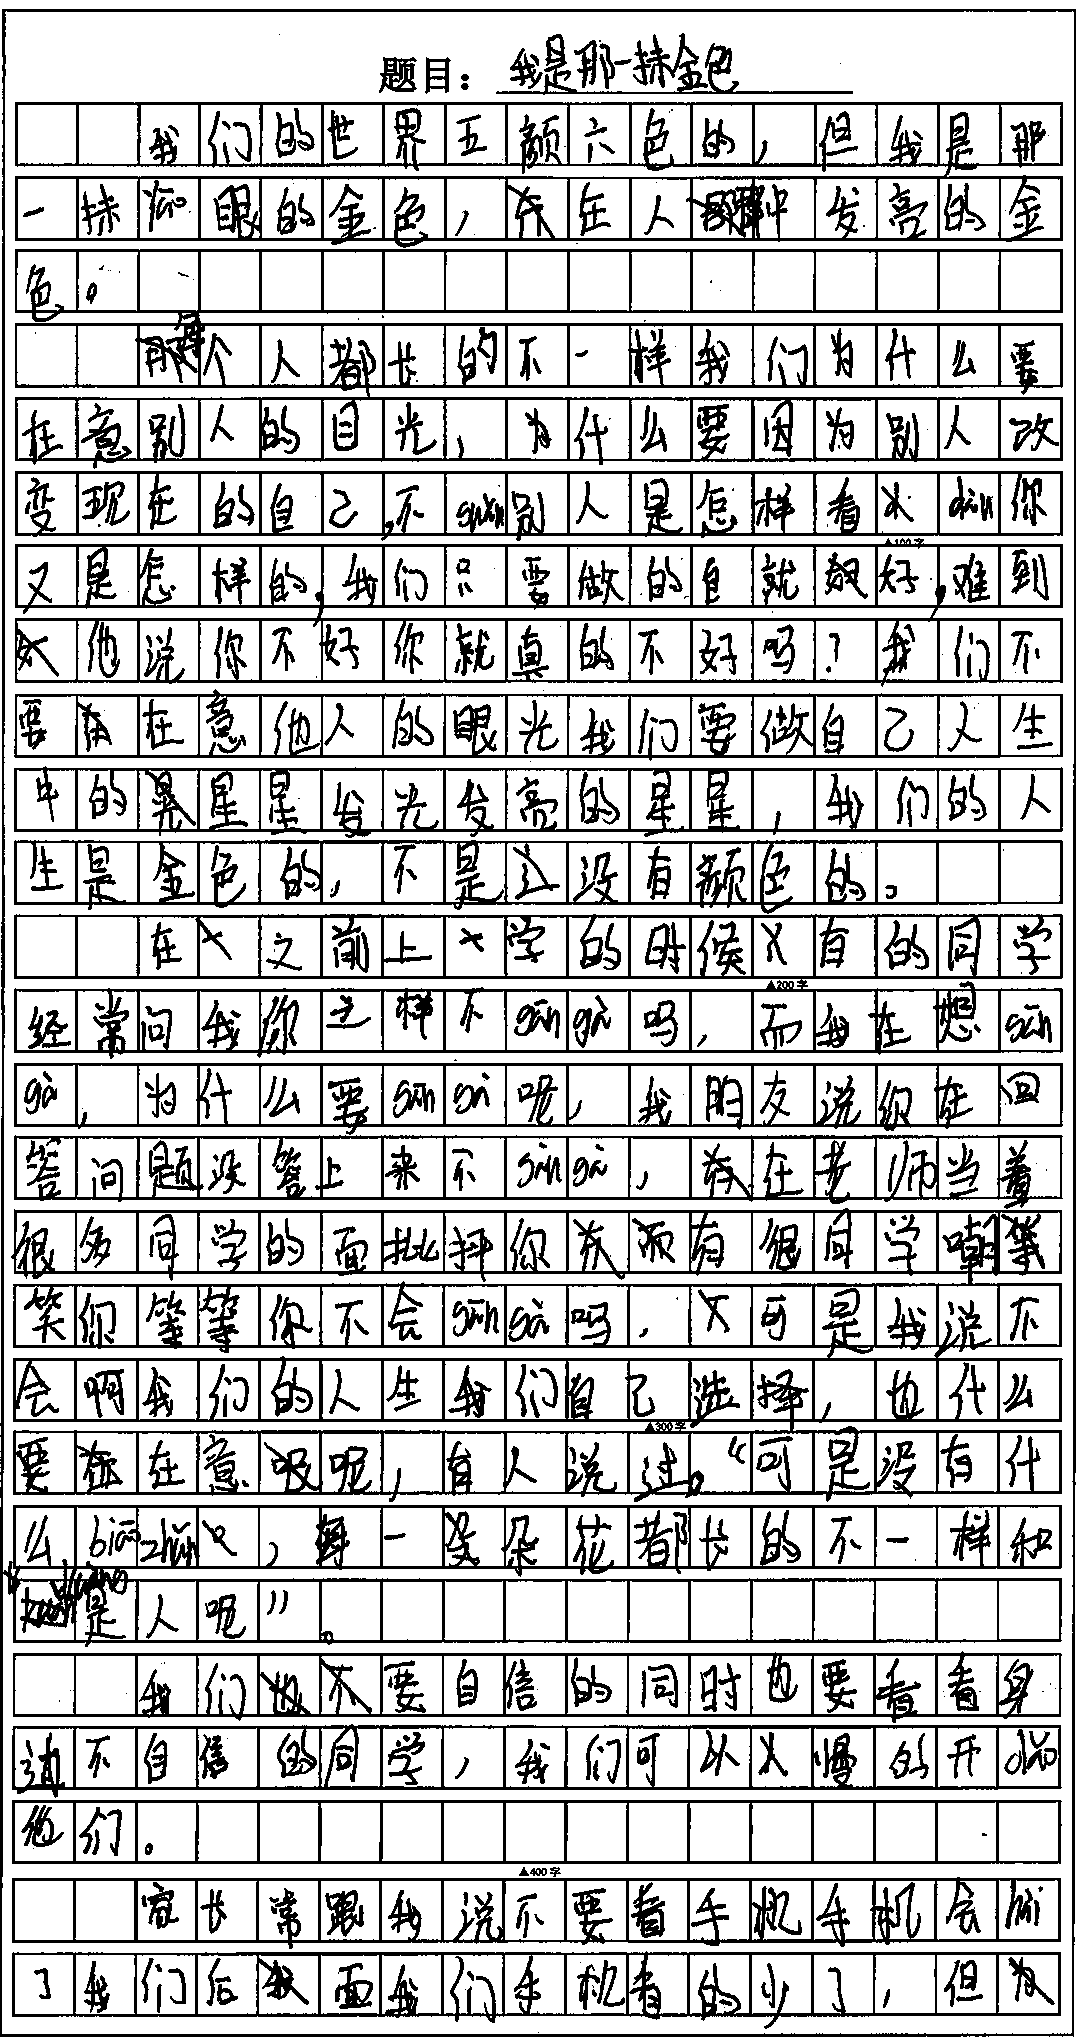 题目：我是那一抹金色
我们的世界五颜六色的，但我是那
一抹yao眼的金色，在人群中发亮的金
色。
每个人都长的不一样我们为什么要
在意别人的目光，为什么要因为别人改
变现在的自己,不suan别人是怎样看dain你
又是怎样的,我们只要做的自就好,难到
他说你不好你就真的不好吗？我们不
要在意他人的眼光我们要做自己人生
中的星星发光发亮的星星，我们的人
生是金色的，不是没有颜色的。
在之前上学的时候有的同学
▲100字
经常问我你这样不gān gà吗，而我在想gān
▲200字
gà，为什么要gān gà呢，我朋友说你在回
答问题没答上来不gān gà，在老师当着
很多同学的面批抖你有很同学嘲
笑你等等你不会gān gà吗，可是我说不
会啊我们的人生我们自己选择，也什么
要在意呢，有人说过。“可是没有什
▲300字
么biao zhun，每一朵花都长的不一样和
是人呢”。
我们要自信的同时也要看看身
边不自信的同学，我们可以慢的开dao
他们。
▲400字
家长常跟我说不要看手机手机会
了我们后面我们手机看的少了，但